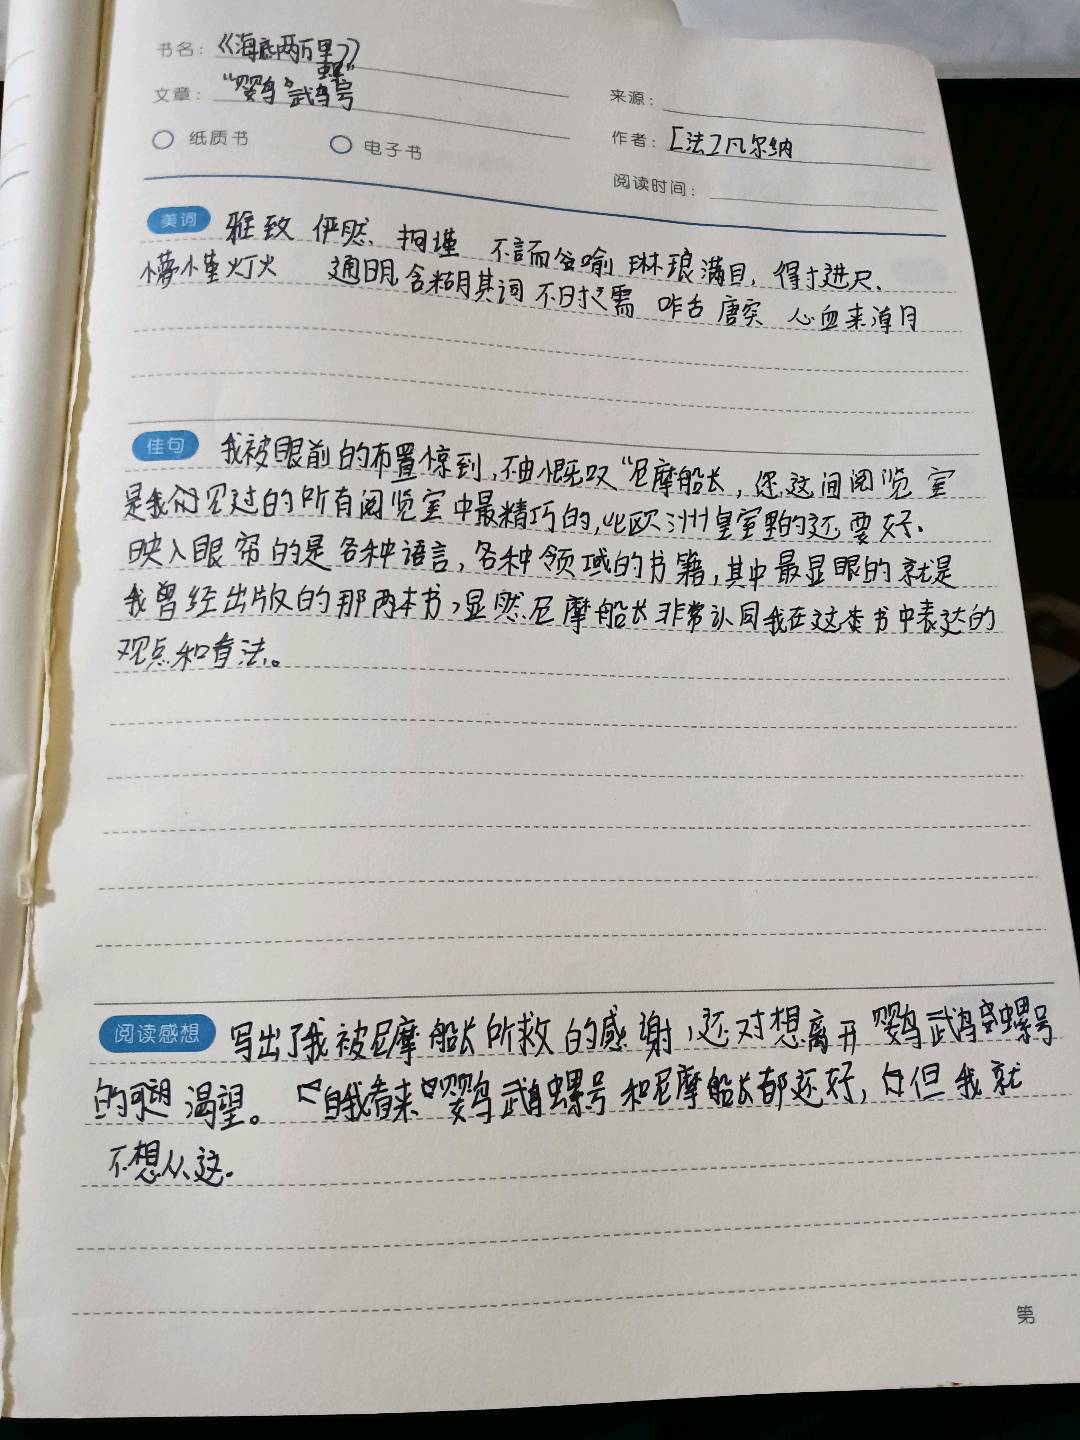 书名：《海底两万里》
文章："鹦鹉螺"号
来源：
纸质书 电子书
作者：[法]凡尔纳
阅读时间：
美词 雅致 俨然、拘谨 不言而喻 琳琅满目，得寸进尺、
懵懂 灯火通明 含糊其词 不时之需 咋舌 唐突 心血来潮
佳句 我被眼前的布置惊到，不由慨叹"尼摩船长，您这间阅览室
是我所见过的所有阅览室中最精巧的，比欧洲皇室里的还要好、
映入眼帘的是各种语言，各种领域的书籍，其中最显眼的就是
我曾经出版的那两本书，显然尼摩船长非常认同我在这类书中表达的
观点和看法。
阅读感想 写出了我被尼摩船长所救的感谢，还对想离开鹦鹉螺号
的渴望。在我看来鹦鹉螺号和尼摩船长都还好，但我就
不想从这.
第